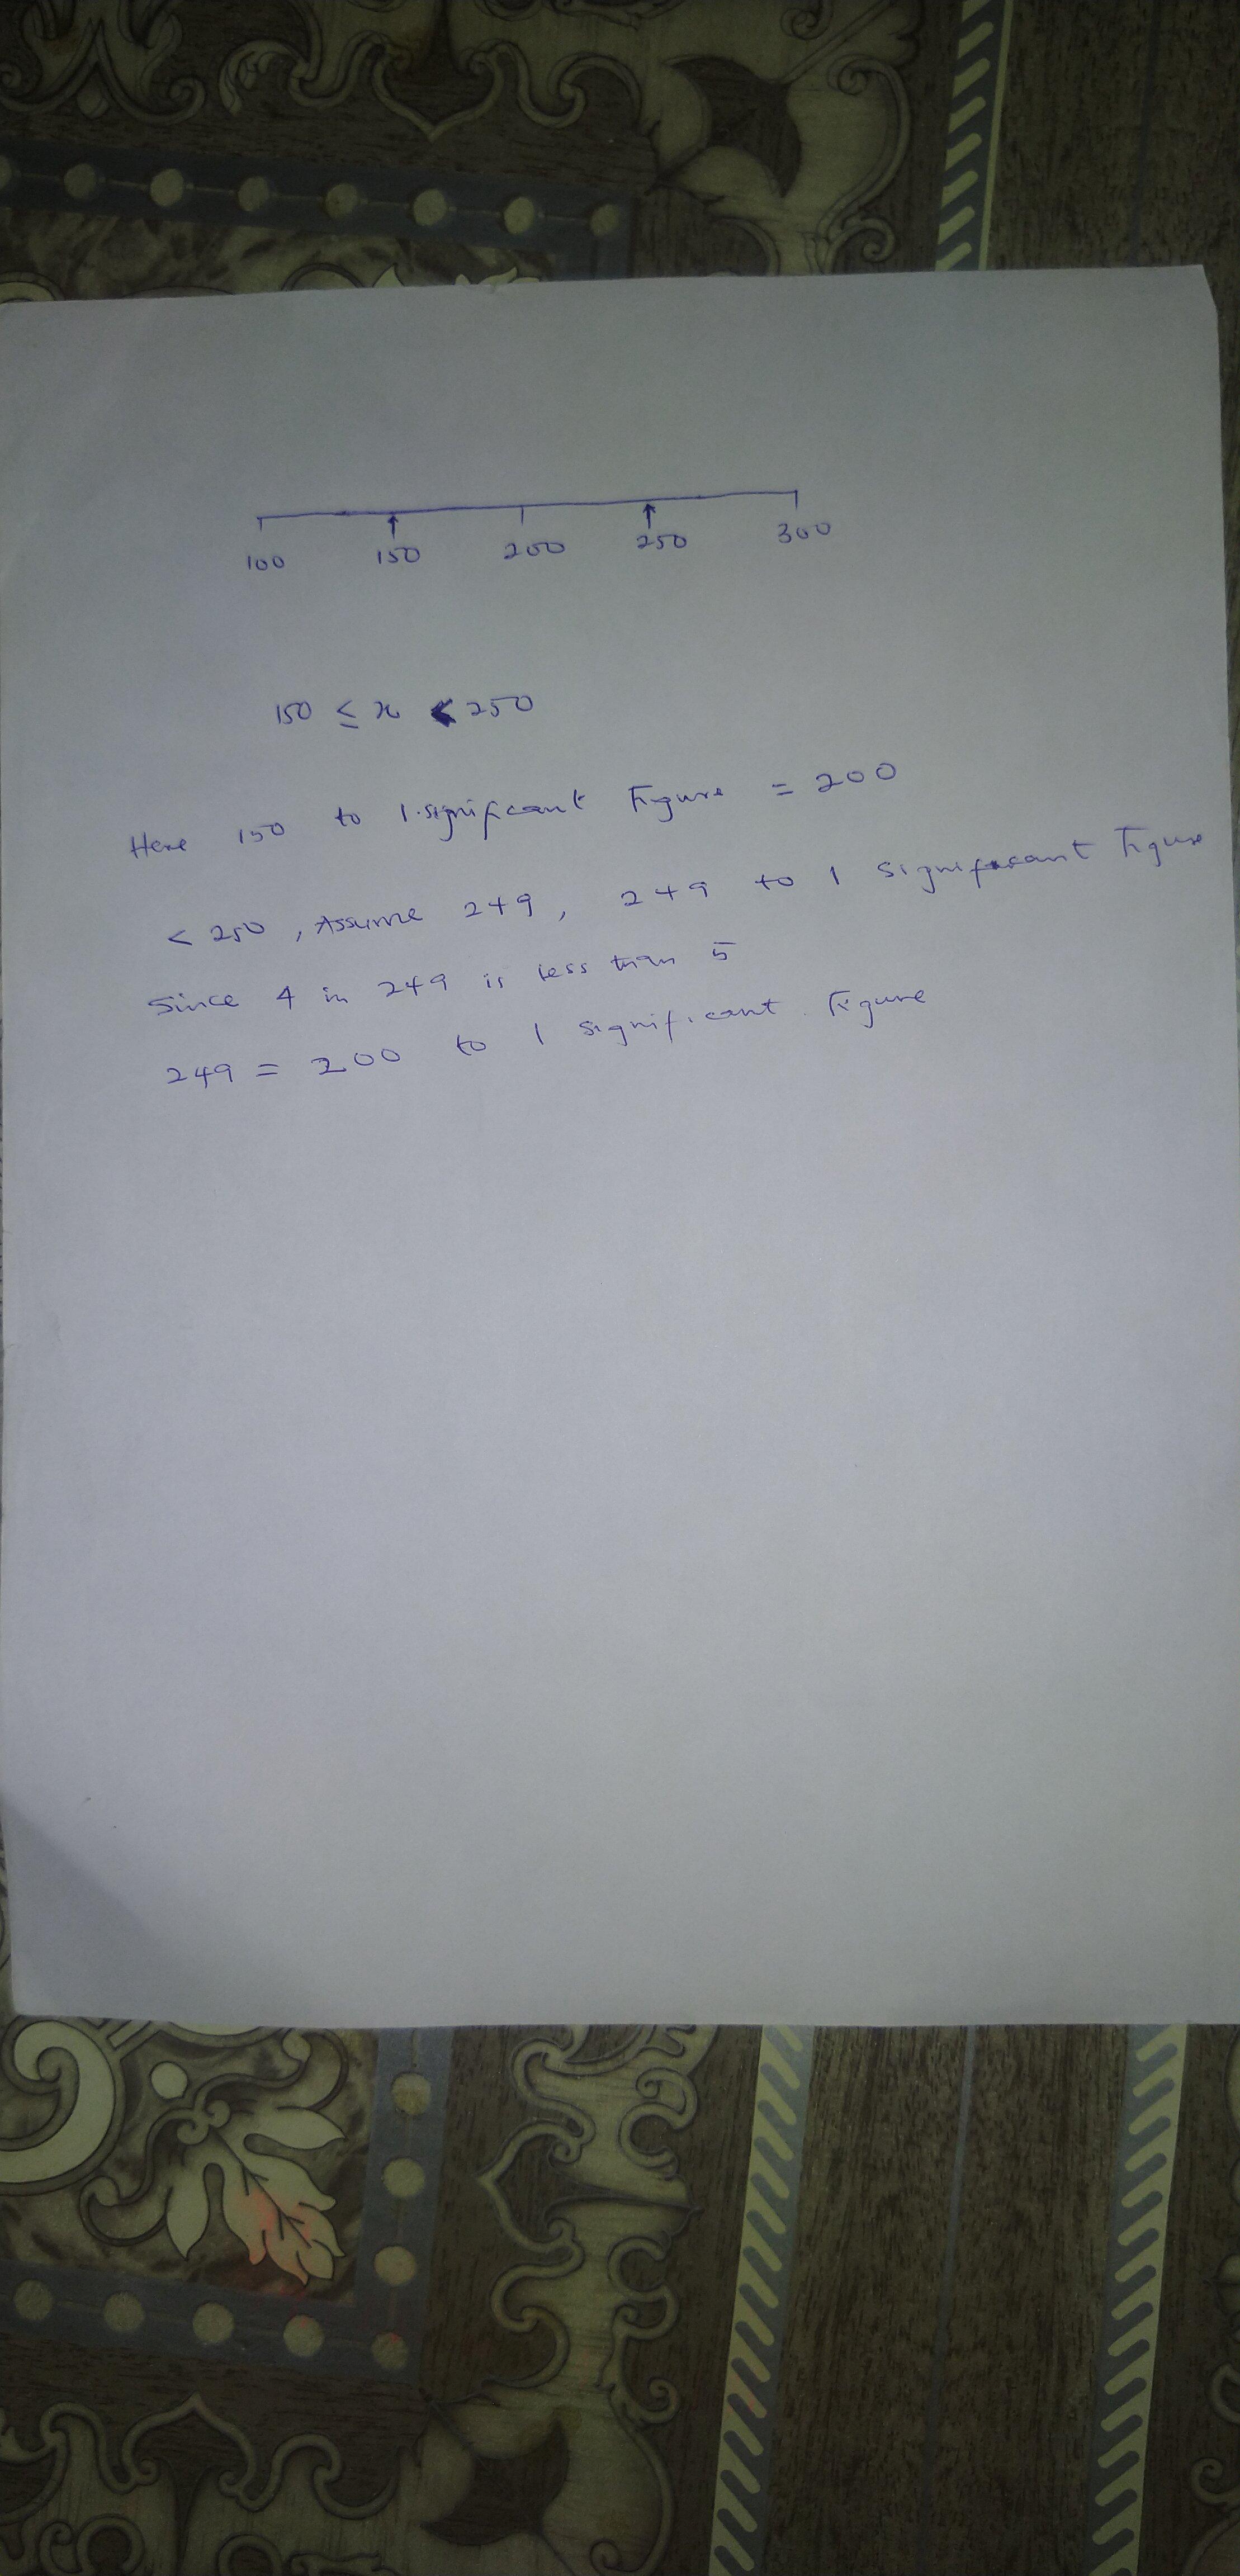 100 150 200 250 300
150 ≤ x < 250
Here 150 to 1 significant Figure = 200
< 250, Assume 249, 249 to 1 significant Figure
Since 4 in 249 is less than 5
249 = 200 to 1 significant Figure